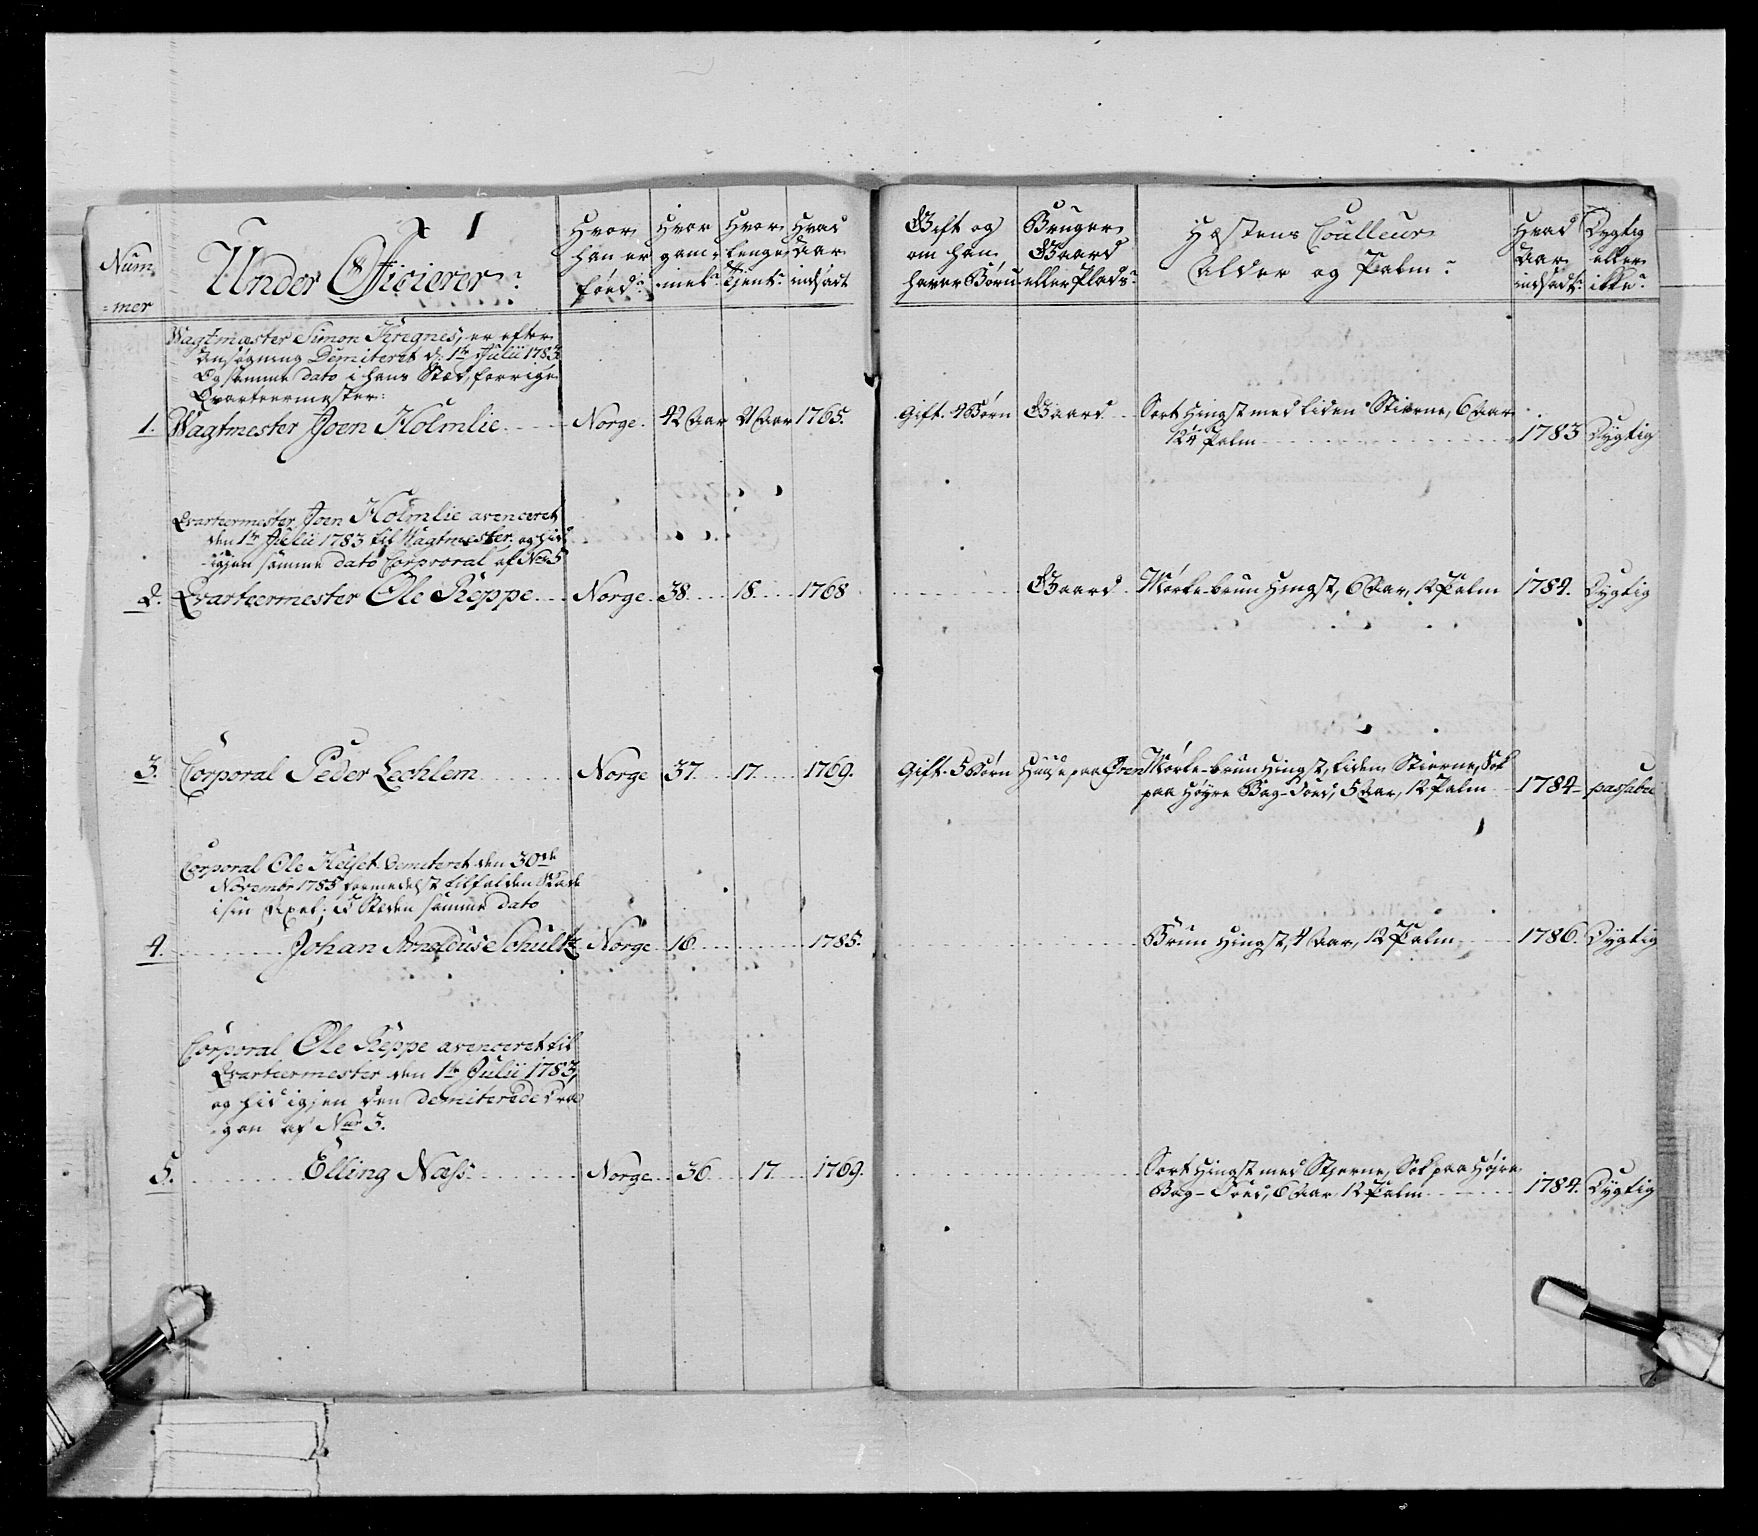 Num
=mer
Under Officierer:
Hvor
han er
föed:
Hvor
gam=
mel:
Hvor
lenge
Tjent:
Hvad
Aar
indsadt
Gift og
om han
haver Børn
Bruger
Gaard
eller Plads:
Hæstens Coulleur
Alder og Palm:
Hvad
Aar
indsadt:
Dygtig
eller
ikke:
Wagtmester Simon Kregnes, er efter
Ansøgning Demiteret d: 1te Julii 1783
Og samme dato i hans Sted, forrige
Qvarteermester:
1. Wagtmester Joen Holmlie Norge. 42 Aar 21 Aar 1765. Gift. 4 Børn Gaard Sort Hingst med liden Stierne, 6 Aar
12¼ Palm 1783 Dygtig
Qvarteermester Joen Holmlie avenceret
den 1te Julii 1783 til Wagtmester, og hid
igjen samme dato Corproral af No 5
2. Qvarteermester Ole Reppe Norge 38. 18. 1768 Gaard Mørke-brun Hingst, 6 Aar, 12 Palm 1784. Dygtig
3. Corporal Peder Lechlem Norge 37. 17. 1769. Gift. 5 Børn Huus paa Øren Mørke-brun Hingst, liden Stierne, Sok
paa Høyre Bag-Foed, 5 Aar, 12 Palm 1784 passabel
Corporal Ole Heiset Demiteret den 30de
Novembr 1785 formedelst tilfalden Skade
i sin Axel; I Steden samme dato
4. Johan Arnoldus Schultz Norge 16. 1785. Brun Hingst, 4 Aar, 12 Palm 1786. Dygtig
Corporal Ole Reppe avenceret til
Qvarteermester den 1te Julii 1783,
og hid igjen den Demiterede Dra
gon af Nor 3.
5. Elling Næss Norge 36 17. 1769. Sort Hingst med Stjerne, Sok paa Højre
Bag-Foed, 6 Aar 12 Palm 1784. Dygtig